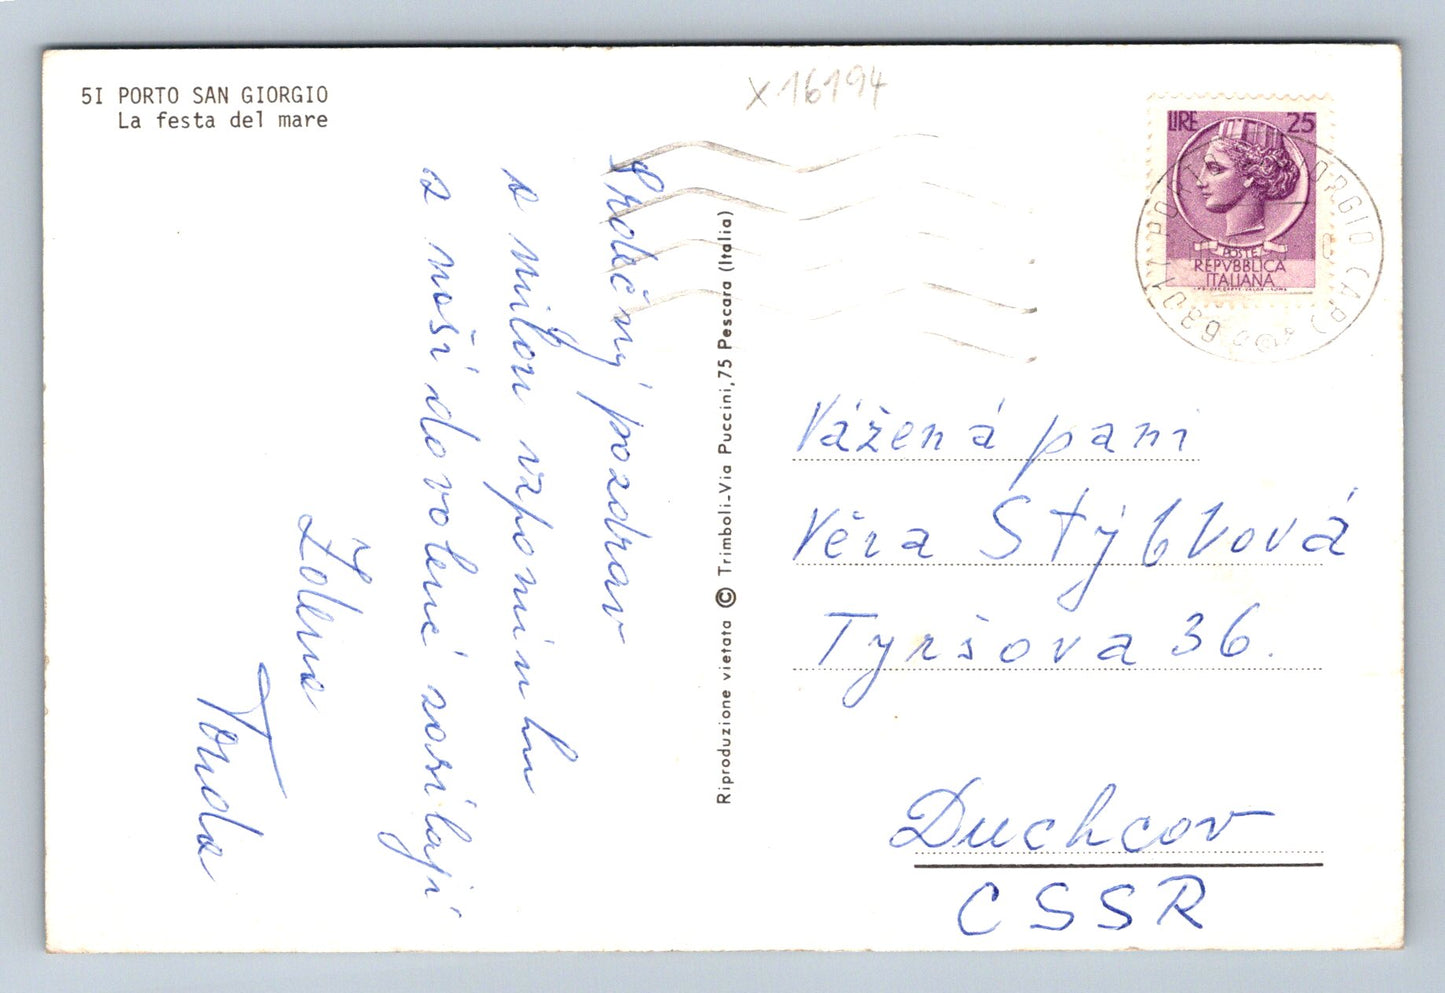 5I PORTO SAN GIORGIO
La festa del mare
X 16194
Srdečný pozdrav
s milou vzpomínkou
z naší dovolené zasílají
Zdena
Tonda
Riproduzione vietata © Trimboli-Via Puccini,75 Pescara (Italia)
LIRE 25
POSTE
REPVBBLICA
ITALIANA
63017 PORTO ORGIO (AP)
Vážená paní
Věra Stýblová
Tyršova 36.
Duchcov
CSSR